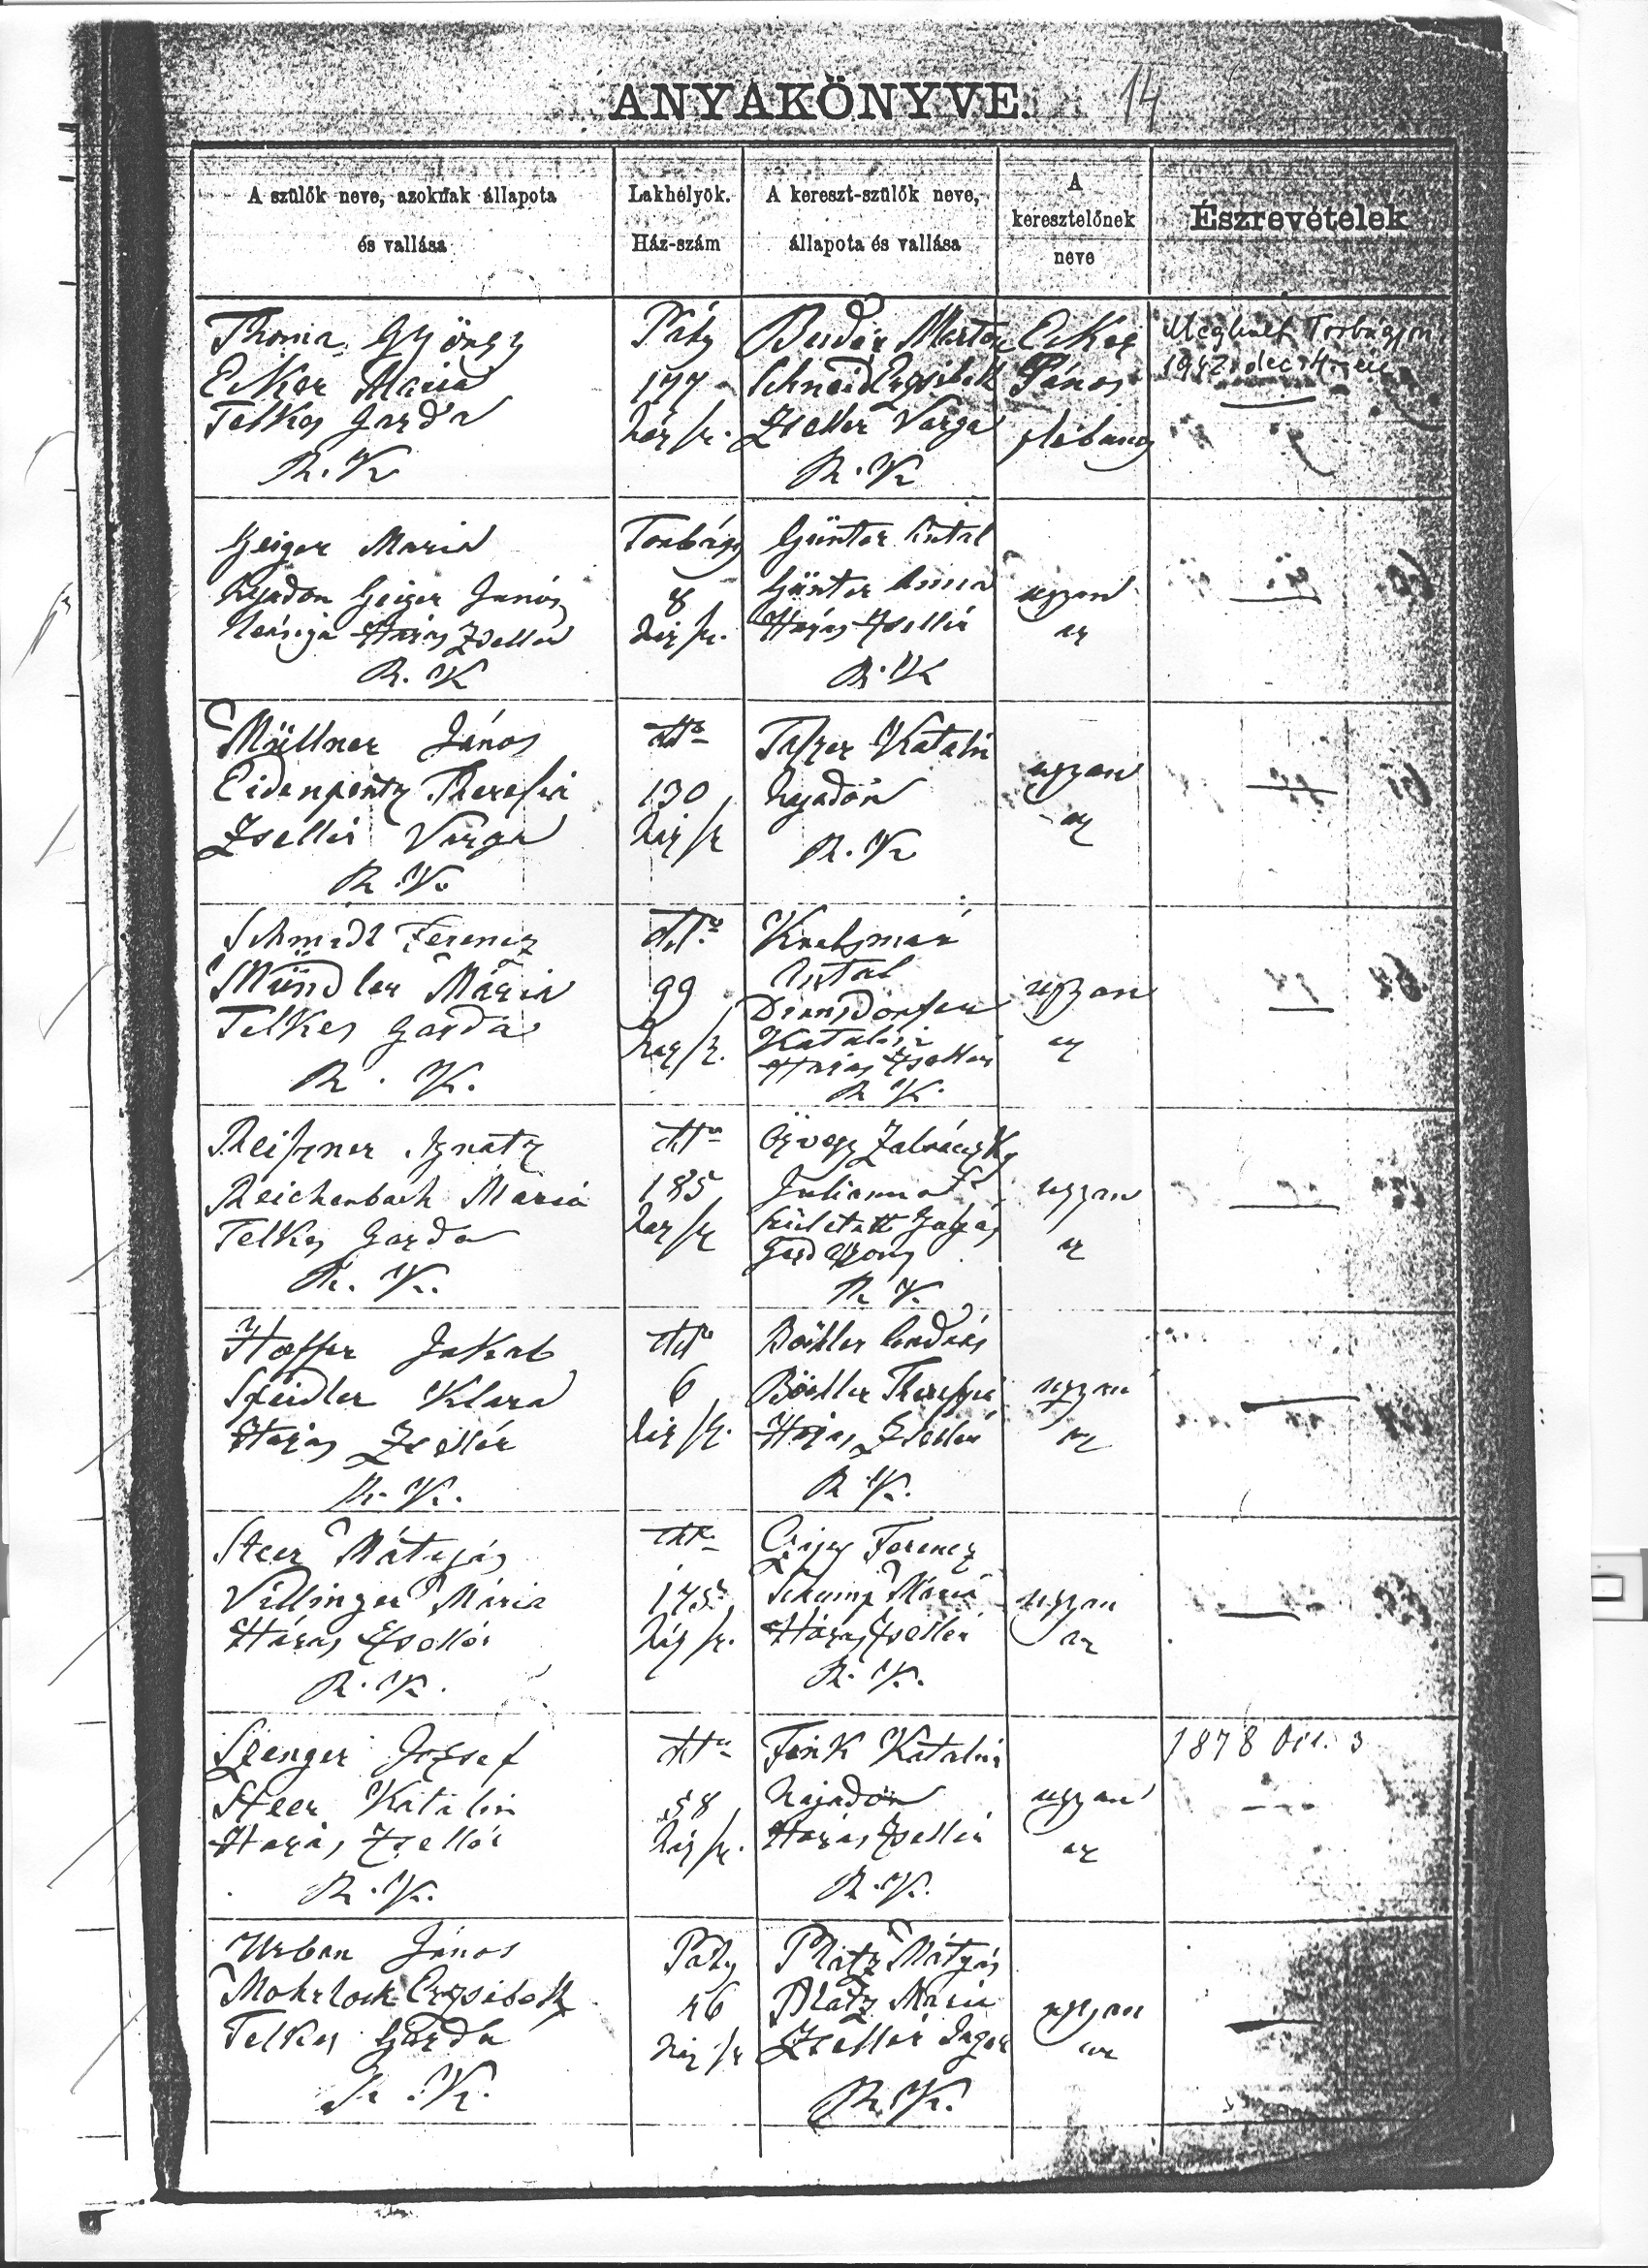 ANYAKÖNYVE. 14
A szülők neve, azoknak állapota
és vallása
Lakhelyök.
Ház-szám
A kereszt-szülők neve,
állapota és vallása
A
keresztelőnek
neve
Észrevételek
Thoma György
Ecker Maria
Telkes Gazda
R. K
Páty
177
ház sz.
Márton
Schneid Erzsébeth
Zsellér Varga
R. K
Ecker
János
plébános
Meghalt Torbágyon
1942 dec 4-én
Geiger Maria
Hajadon Geiger János
leánya Házas Zsellér
R. K
Torbágy
8
ház sz.
Günter Antal
Günter Anna
Házas Zsellér
R. K
ugyan
az
Müllner János
Eidenpentz Theresia
Zsellér Varga
R. K.
tto
130
ház sz
Taszer Katalin
hajadon
R. K
ugyan
az
Schmidt Ferencz
Mündler Mária
Telkes Gazda
R. K.
tto
99
ház sz.
Antal
Katalin
Házas Zsellér
R K.
ugyan
az
Reiszner Ignátz
Reichenbach Mária
Telkes Gazda
R. K.
tto
185
ház sz
özvegy
Julianna
született
R K.
ugyan
az
Hoffer Jakab
Speidler Klara
Házas Zsellér
R. K.
tto
6
ház sz.
András
Theresia
Házas Zsellér
R K.
ugyan
az
Steer Mátyás
Villinger Mária
Házas Zsellér
R. K.
tto
175
ház sz.
Ferencz
Mária
Házas Zsellér
R. K.
ugyan
az
Szenger József
Steer Katalin
Házas Zsellér
R. K.
tto
58
ház sz.
Fink Katalin
hajadon
Házas Zsellér
R. K.
ugyan
az
1878 Dec. 3
Urban János
Mohrlock Erzsébeth
Telkes Gazda
R. K.
Páty
46
ház sz
Platz Mátyás
Platz Maria
Zsellér
R. K.
ugyan
az